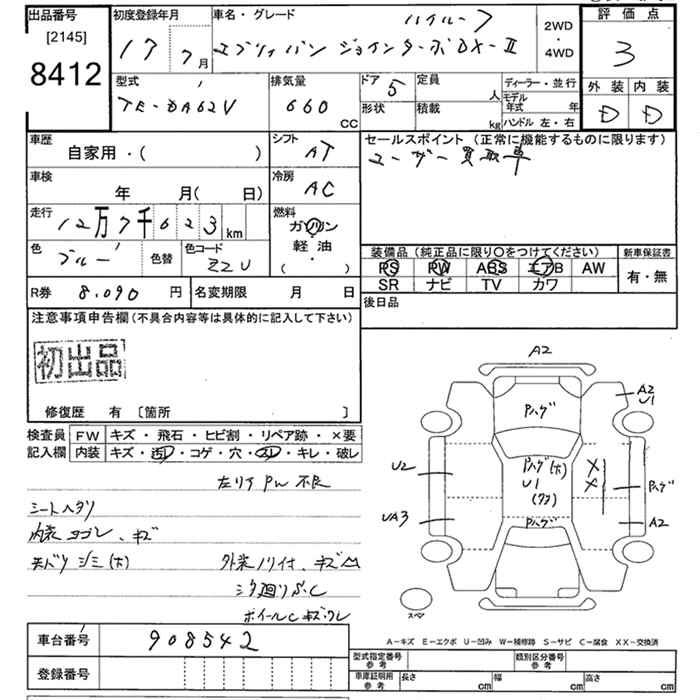 出品番号 初度登録年月 車名・グレード ハイルーフ 評価点
[2145]
8412
17年 7月 エブリィバン ジョインターボDX-II 2WD・4WD 3
型式 排気量 ドア 5 定員 人 ディーラー・並行 外装 内装
TE-DA62V 660 CC 形状 積載 kg モデル年式 年 D D
ハンドル 左・右
車歴 シフト セールスポイント (正常に機能するものに限ります)
自家用・( ) AT ユーザー買取車
車検 年 月( 日) 冷房 AC
走行 12万7千623km 燃料 ガソリン
軽油
・( )
色 ブルー 色替 色コード ZZU
装備品 (純正品に限り〇をつけてください) 新車保証書
PS PW ABS エアB AW 有・無
SR ナビ TV カワ
R券 8,090 円 名変期限 月 日 後日品
注意事項申告欄(不具合内容等は具体的に記入して下さい)
初出品
修復歴 有 〔箇所 〕
検査員 FW キズ・飛石・ヒビ割・リペア跡・×要
記入欄 内装 キズ・汚れ・コゲ・穴・スレ・キレ・破レ
左リア PW 不良
シートヘタリ
内装ヨゴレ、キズ
天バリ シミ(ホ) 外装ノリ付、キズ凹
シタ廻りS.C
ホイールC キズ、ワレ
A2
A2
U1
Pハゲ
U2
Pハゲ(ホ)
U1
(ワク)
XX
Pハゲ
UA3
Pハゲ
A2
スペア
A-キズ E-エクボ U-凹み W-補修跡 S-サビ C-腐食 XX-交換済
車台番号 908542
登録番号
型式指定番号 参考 類別区分番号 参考
車庫証明用 参考 長さ cm 幅 cm 高さ cm